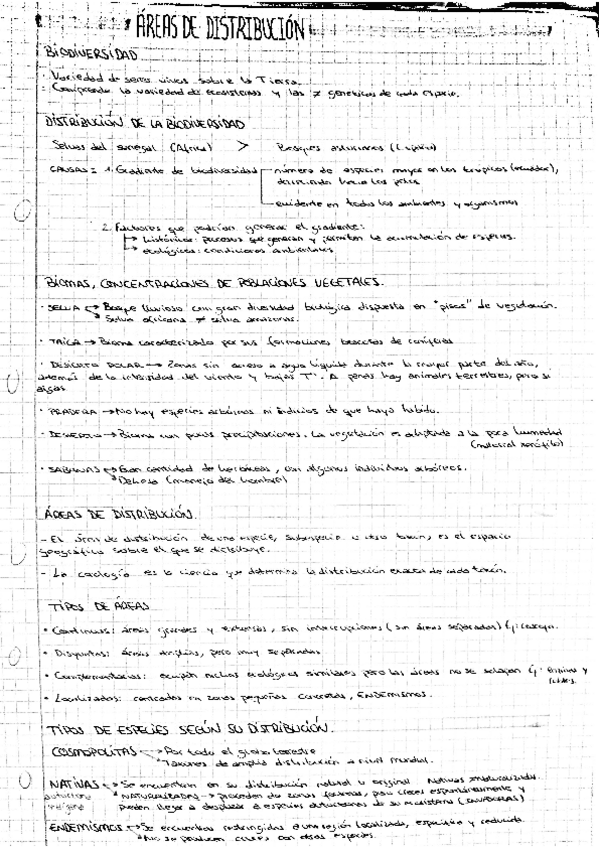 ÁREAS DE DISTRIBUCIÓN
BIODIVERSIDAD
- Variedad de seres vivos sobre la Tierra.
- Comprende la variedad de ecosistemas y las ≠ genéticas de cada especie.
DISTRIBUCIÓN DE LA BIODIVERSIDAD
Selvas del senegal (África) > Bosques asturianos
CAUSAS: 1. Gradiente de biodiversidad número de especies mayor en los trópicos (ecuador),
disminuyendo hacia los polos
evidente en todos los ambientes y organismos
2. Factores que podrían generar el gradiente:
históricos: procesos que generan y permiten la acumulación de especies.
ecológicos: condiciones ambientales
BIOMAS, CONCENTRACIONES DE POBLACIONES VEGETALES.
· SELVA Bosque lluvioso con gran diversidad biológica dispuesta en "pisos" de vegetación.
Selva africana ≠ selva amazonas.
· TAIGA → Bioma caracterizado por sus formaciones boscosas de coníferas
· DESIERTO POLAR → Zonas sin acceso a agua líquida durante la mayor parte del año,
además de la intensidad del viento y bajas Tª. A penas hay animales terrestres, pero si
algas
· PRADERA → No hay especies arbóreas ni indicios de que haya habido.
· DESIERTO → Bioma con pocas precipitaciones. La vegetación es adaptada a la poca humedad
(matorral xerófilo)
· SABANAS Gran cantidad de herbáceas, con algunos individuos arbóreos.
Dehesa (manejo del hombre)
ÁREAS DE DISTRIBUCIÓN.
- El área de distribución de una especie, subespecie u otro taxon, es el espacio
geográfico sobre el que se distribuye.
- La corología es la ciencia que determina la distribución exacta de cada taxón.
TIPOS DE ÁREAS
· Continuas: áreas grandes y extensas, sin interrupciones (sin áreas separadas)
· Disyuntas: áreas amplias, pero muy separadas
· Complementarias: ocupan nichos ecológicos similares pero las áreas no se solapan
· Localizadas: centradas en zonas pequeñas concretas, ENDEMISMOS.
TIPOS DE ESPECIES SEGÚN SU DISTRIBUCIÓN.
COSMOPOLITAS Por todo el globo terrestre
Taxones de amplia distribución a nivel mundial.
NATIVAS Se encuentran en su distribución natural u original
NATURALIZADAS → proceden de zonas foráneas, pero crecen espontáneamente y
pueden llegar a desplazar a especies autóctonas de su ecosistema
ENDEMISMOS Se encuentran restringidas a una región localizada, específica y reducida.
No se producen cruces con otras especies.